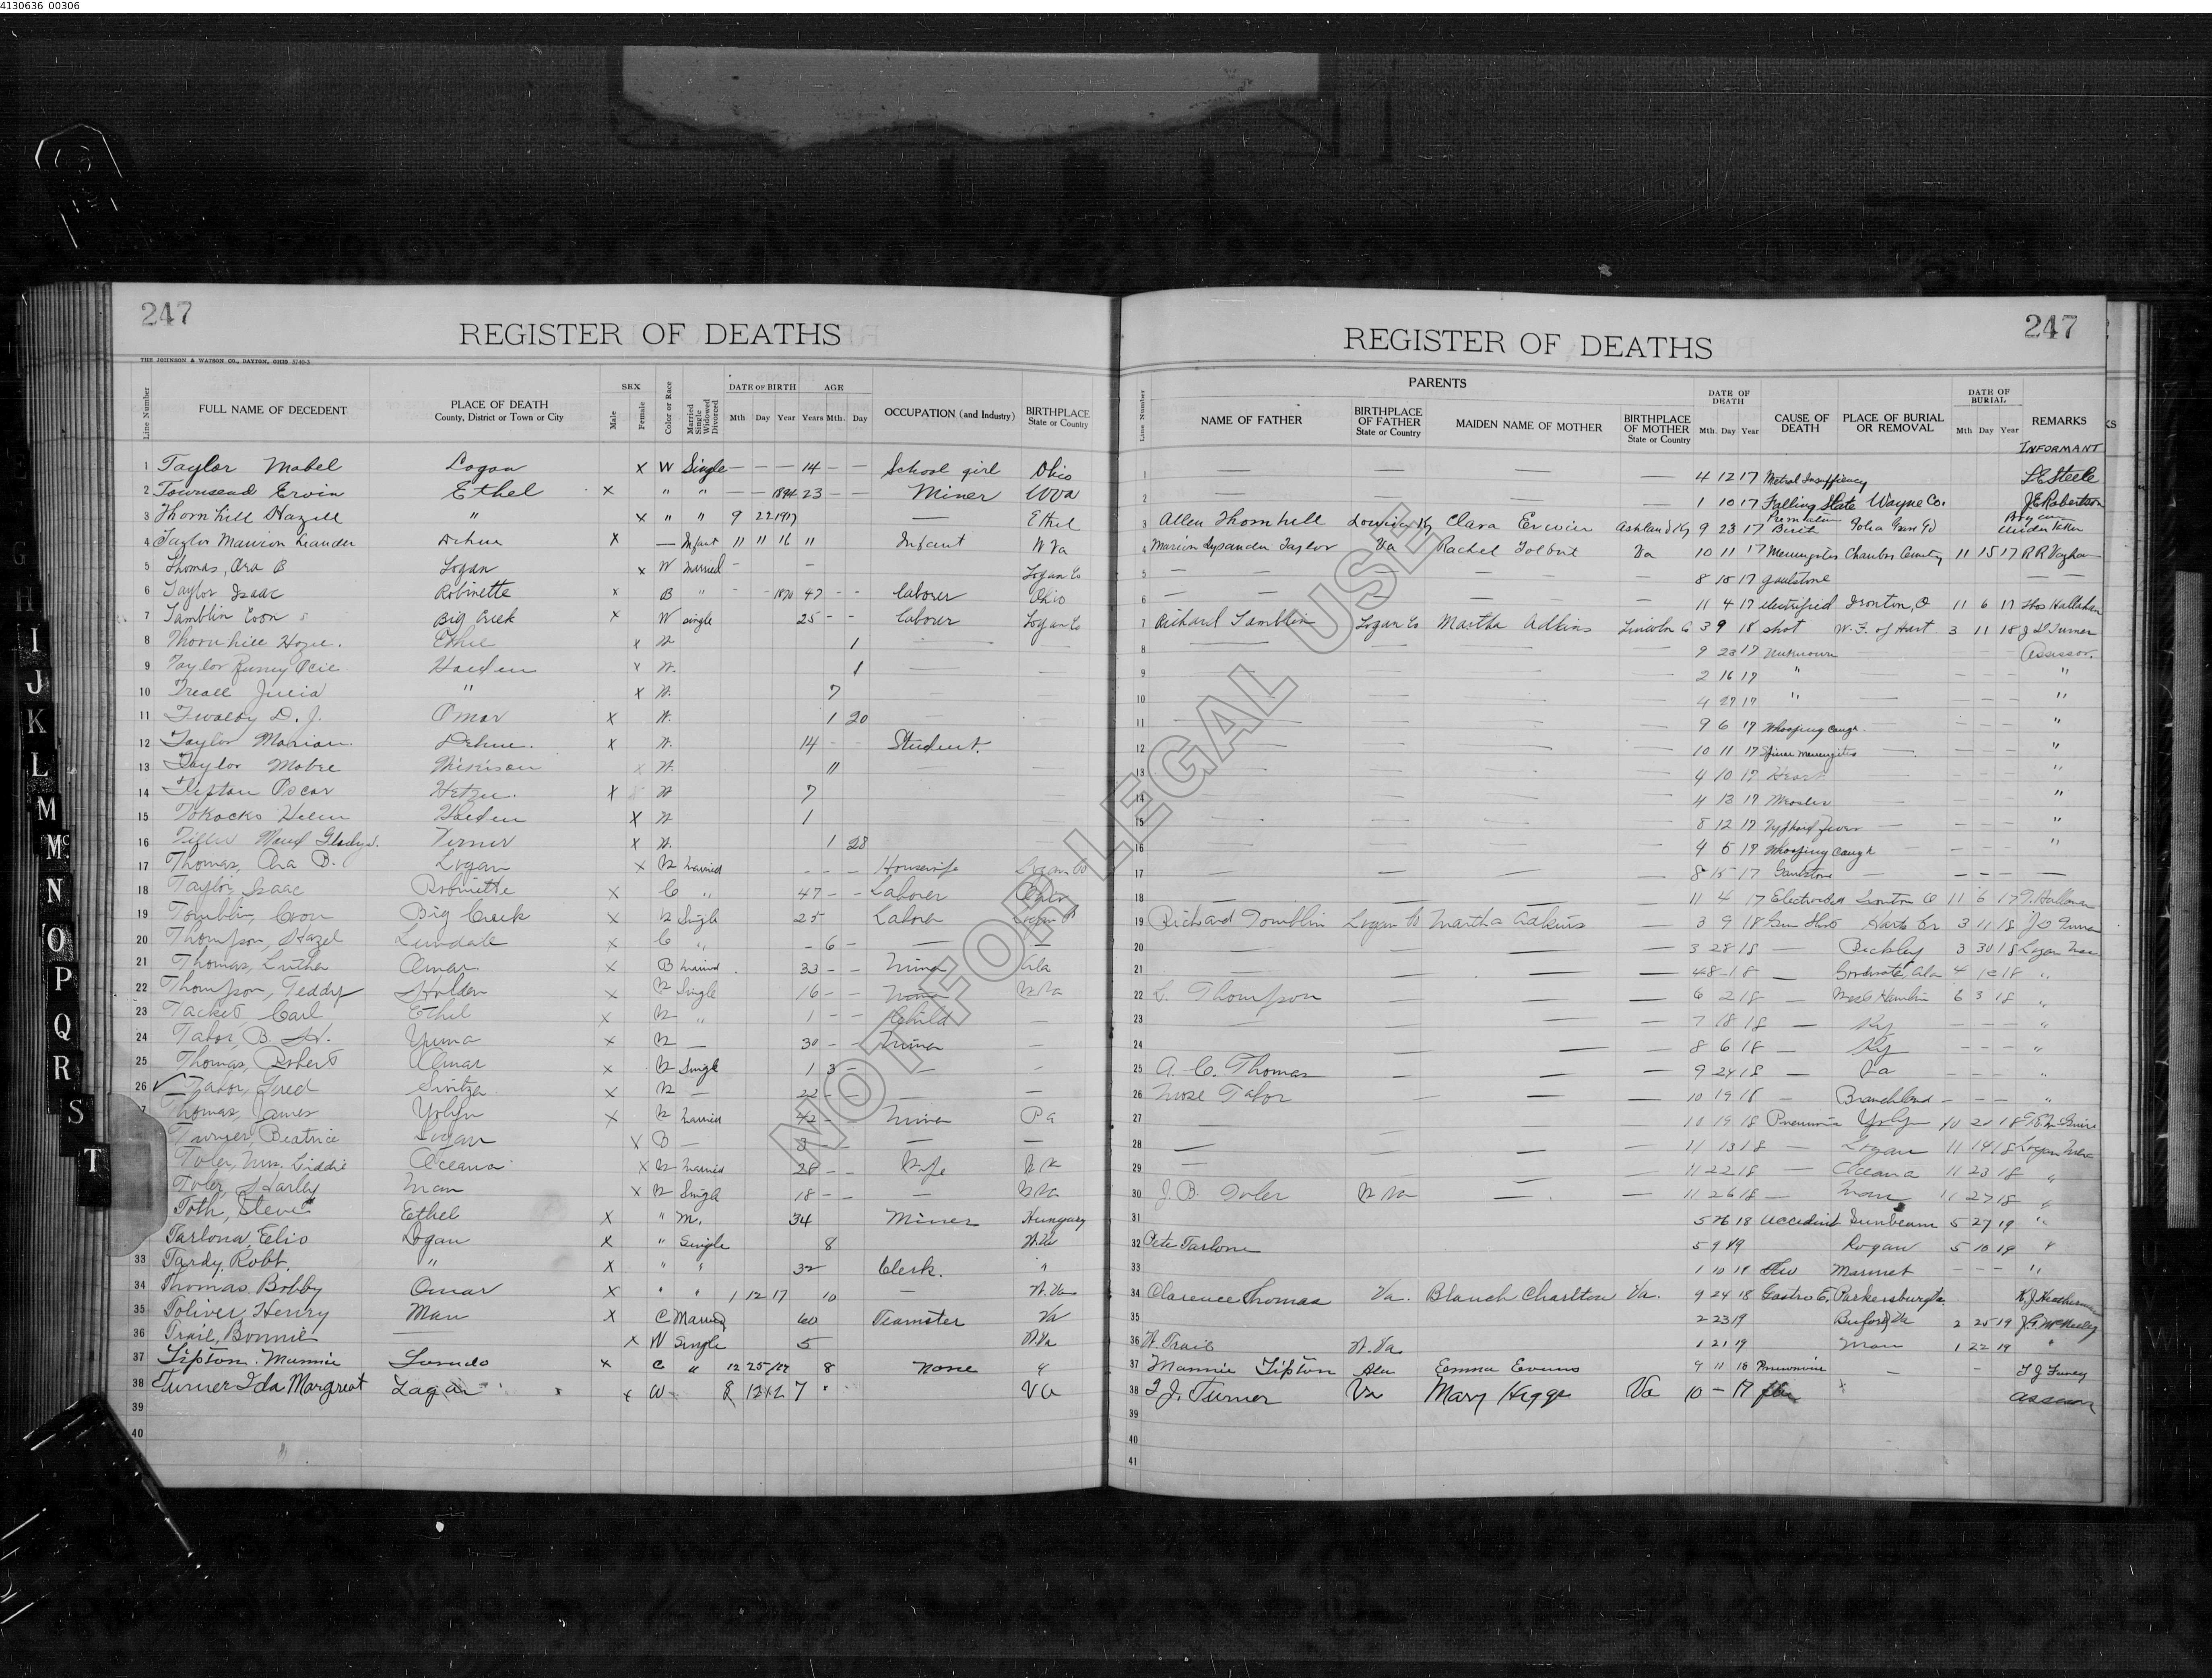 4130636_00306
247
REGISTER OF DEATHS
THE JOHNSON & WATSON CO., DAYTON, OHIO 5740-5
Line Number FULL NAME OF DECEDENT PLACE OF DEATH County, District or Town or City SEX Male Female Color or Race Married Single Widowed Divorced DATE OF BIRTH Mth Day Year AGE Years Mth. Day OCCUPATION (and Industry) BIRTHPLACE State or Country
1 Taylor Mabel Logan x W Single — — — 14 — — School girl Ohio
2 Townsend Ervin Ethel x " " — — 1894 23 — — Miner WVa
3 Thornhill Hazell " x " " 9 22 1917 — Ethel
4 Taylor Marion Leander Dehue x — Infant 11 11 16 11 Infant W Va
5 Thomas, Ora B Logan x W Married — — Logan Co
6 Taylor Isaac Robinette x B " - - 1870 47 - - Laborer Ohio
7 Tamblin Evon Big Creek x W single 25 - - Laborer Logan Co
8 Thornhill Ethel x W. 1
9 Taylor Holden x W. 1
10 Julia " x W. 7
11 D. J. Omar x W. 1 20
12 Taylor Marion. Dehue. x W. 14 - - Student.
13 Taylor x W. 11
14 Tipton Oscar x W 7
15 Holden x W 1
16 x W. 1 28
17 Thomas, Ora B. Logan x W Married - - - Housewife Logan Co
18 Taylor, Isaac Robinette x C " 47 - - Laborer Ohio
19 Tomblin, Evon Big Creek x W Single 25 Laborer Logan Co
20 Thompson, Hazel Lundale x C " - 6 - —
21 Thomas, Luther Omar x B Married 33 - - Miner Ala
22 Thompson, Teddy Holden x W Single 16 - - Miner W Va
23 Tacket Carl Ethel x W " 1 - - Child —
24 Tabor, B. H. Yuma x W — 30 - - Miner
25 Thomas, Robert Omar x W Single 1 3 - —
26 Tabor, Fred Switzer x W — 22 - -
Thomas, James Yolyn x W Married 42 - - Miner Pa
Turner, Beatrice Logan x B — 3 - - —
Toler, Mrs. Liddie Oceana x W Married 28 - - Wife
Toler, Harley Man x W Single 18 - - — W Va
Toth, Steve Ethel x " M. 34 Miner Hungary
Tarlona, Elio Logan x " Single 8 W.Va
33 Tardy, Robt. " x " " 32 Clerk. "
34 Thomas Bobby Omar x " " 1 12 17 10 — W. Va
35 Toliver, Henry Man x C Married 60 Teamster Va
36 Trail, Bonnie — x W Single 5 W.Va
37 Tipton. Mannie Lorado x C " 12 25/17 8 None "
38 Turner Ida Margreat Logan x W 12 7 Va
39
40
I
J
K
L
M
Mc
N
O
P
Q
R
S
T
247
REGISTER OF DEATHS
Line Number PARENTS NAME OF FATHER BIRTHPLACE OF FATHER State or Country MAIDEN NAME OF MOTHER BIRTHPLACE OF MOTHER State or Country DATE OF DEATH Mth. Day Year CAUSE OF DEATH PLACE OF BURIAL OR REMOVAL DATE OF BURIAL Mth Day Year REMARKS
INFORMANT
1 — — — — 4 12 17 Metral Insufficiency L E Steele
2 — — — — 1 10 17 Falling Slate Wayne Co. J E Robertson
3 Allen Thornhill Louisa Ky Clara Erwin Ashland Ky 9 23 17 Premature Birth Undertaker
4 Marion Lysander Taylor Va Rachel Tolbert Va 10 11 17 Meningitis 11 15 17 R R Vaghan
5 — — — — 8 15 17 gaulstone — —
6 — — — — 11 4 17 electrified Ironton, O 11 6 17 Thos Hallahan
7 Richard Tamblin Logan Co Martha Adkins Lincoln Co 3 9 18 shot W. F. of Hart 3 11 18 J D Turner
8 — — — — 9 23 17 Unknown — — — — Assessor.
9 — — — — 2 16 17 " — — — — "
10 — — — — 4 27 17 " — — — — "
11 — — — — 9 6 17 Whooping Cough — — — — "
12 — — — — 10 11 17 Spinal Meningitis — — — — "
13 — — — — 4 10 17 Heart — — — — "
14 — — — — 4 13 17 Measles — — — — "
15 — — — — 8 12 17 Typhoid fever — — — — "
16 — — — — 4 5 17 Whooping Cough — — — — "
17 — — — — 8 15 17 Gaulstone — — — — —
18 — — — — 11 4 17 Ironton O 11 6 17 T. Hallahan
19 Richard Tomblin Logan Co Martha Adkins 3 9 18 Gun Shot Harts Cr 3 11 18 J D Turner
20 — — — — 3 28 18 — Beckley 3 30 18 Logan
21 — — — — 4 8 18 — Ala 4 10 18 "
22 C. Thompson — — — 6 2 18 — West Hamlin 6 3 18 "
23 — — — — 7 18 18 — Ky — — — "
24 — — — — 8 6 18 — Ky — — — "
25 A. C. Thomas — — — 9 24 18 — Va — — — "
26 Mose Tabor — — — 10 19 18 — Branchland — — — "
27 — — — — 10 19 18 Pneumonia Yolyn 10 20 18
28 — — — — 11 13 18 — Logan 11 14 18 Logan
29 — — — — 11 22 18 — Oceana 11 23 18 "
30 J. B. Toler W Va — — 11 26 18 — Man 11 27 18 "
31 5 26 18 Accident Sunbeam 5 27 19 "
32 Pete Tarlone 5 9 19 Logan 5 10 19 "
33 1 10 19 Flu Marmet - - - "
34 Clarence Thomas Va. Blanch Charlton Va. 9 24 18 Gastro E. Parkersburg
35 2 23 19 Buford Va 2 25 19 J. G. McNeeley
36 W. Trail W. Va 1 21 19 Man 1 22 19 "
37 Mannie Tipton Ala Emma Evans 9 11 18 Pneumonia — -
38 T J. Turner Va Mary Va 10 — 17 flu
39
40
41
NOT FOR LEGAL USE